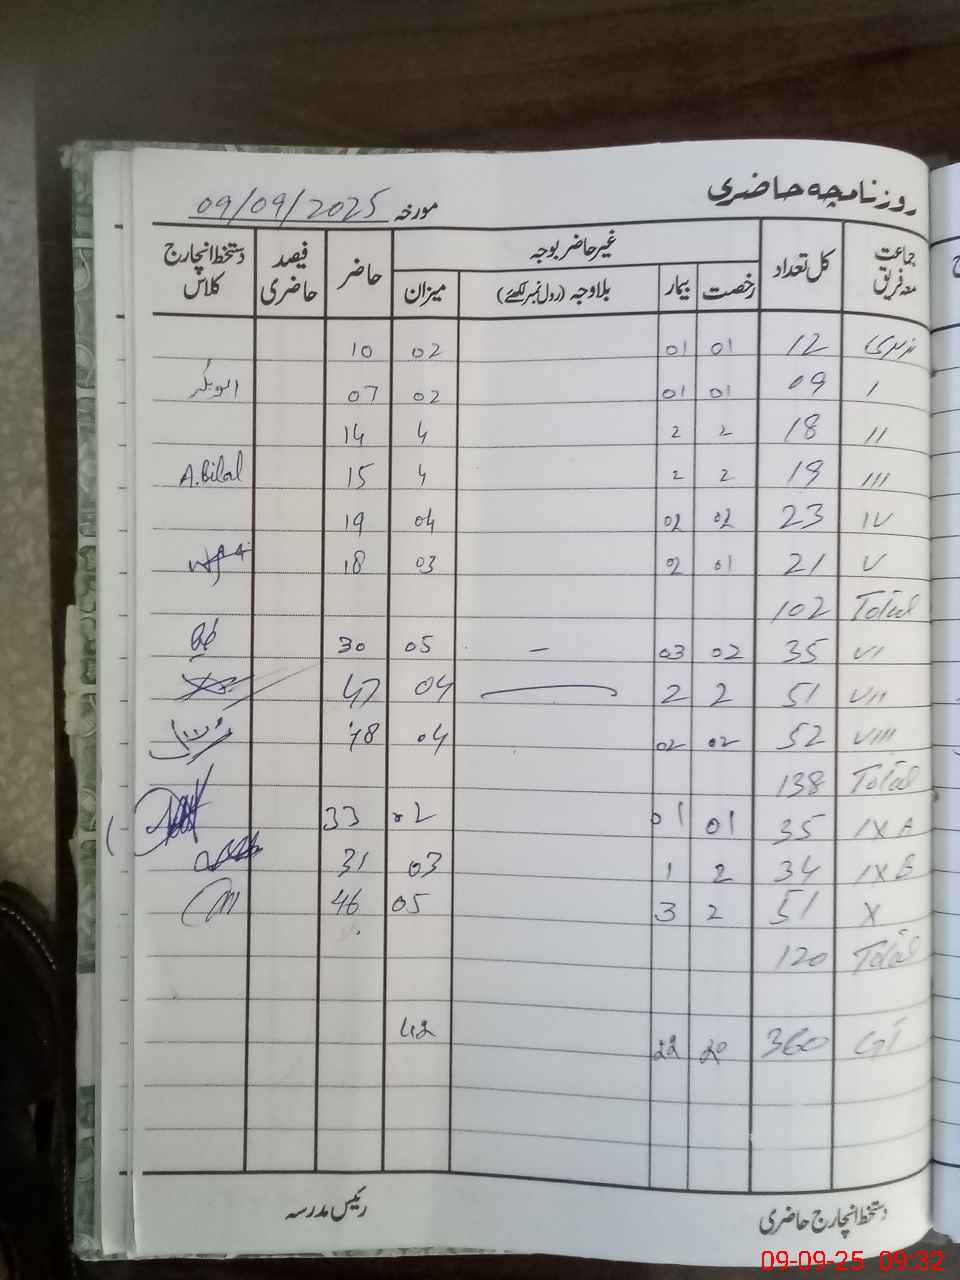 روزنامچہ حاضری
مورخہ 09/09/2025
جماعت معہ فریق کل تعداد غیر حاضر بوجہ حاضر فیصد حاضری دستخط انچارج کلاس
رخصت بیمار بلاوجہ (رول نمبر لکھئے) میزان
نرسری 12 01 01 02 10
I 09 01 01 02 07 ابوبکر
II 18 2 2 4 14
III 19 2 2 4 15 A.Bilal
IV 23 02 02 04 19
V 21 01 02 03 18
Total 102
VI 35 02 03 – 05 30
VII 51 2 2 — 04 47
VIII 52 02 02 04 48
Total 138
IX A 35 01 01 02 33
IX B 34 2 1 03 31
X 51 2 3 05 46
Total 120
GT 360 20 22 42
دستخط انچارج حاضری رئیس مدرسہ
09-09-25 09:32